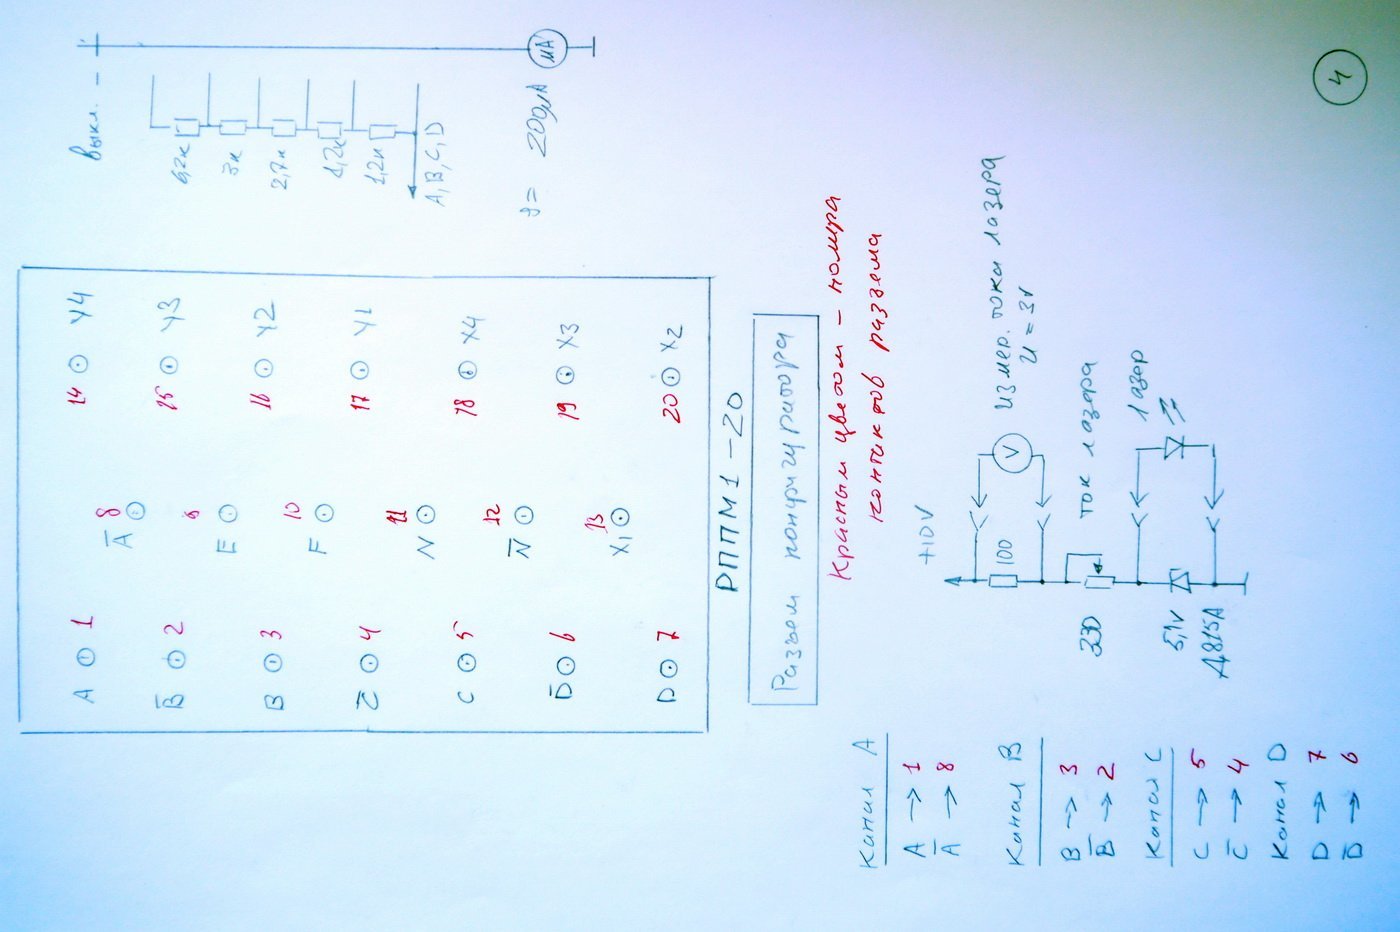 4
Выкл.
6,2к
3к
2,7к
1,2к
1,2к
A, B, C, D
µA
I = 200µA
A 1
B̅ 2
B 3
C̅ 4
C 5
D̅ 6
D 7
8 A̅
9 E
10 F
11 N
12 N̅
13 X1
14 Y4
15 Y3
16 Y2
17 Y1
18 X4
19 X3
20 X2
РППМ1-20
Разъем конфигуратора
Красным цветом - номра
контактов разъема
Канал A
A → 1
A̅ → 8
Канал B
B → 3
B̅ → 2
Канал C
C → 5
C̅ → 4
Канал D
D → 7
D̅ → 6
+10V
100
V
Измер. тока лазера
U = 3V
330
ток лазера
5,1V
Д815А
лазер